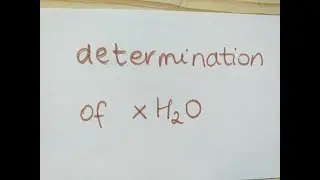 determination
of xH₂O